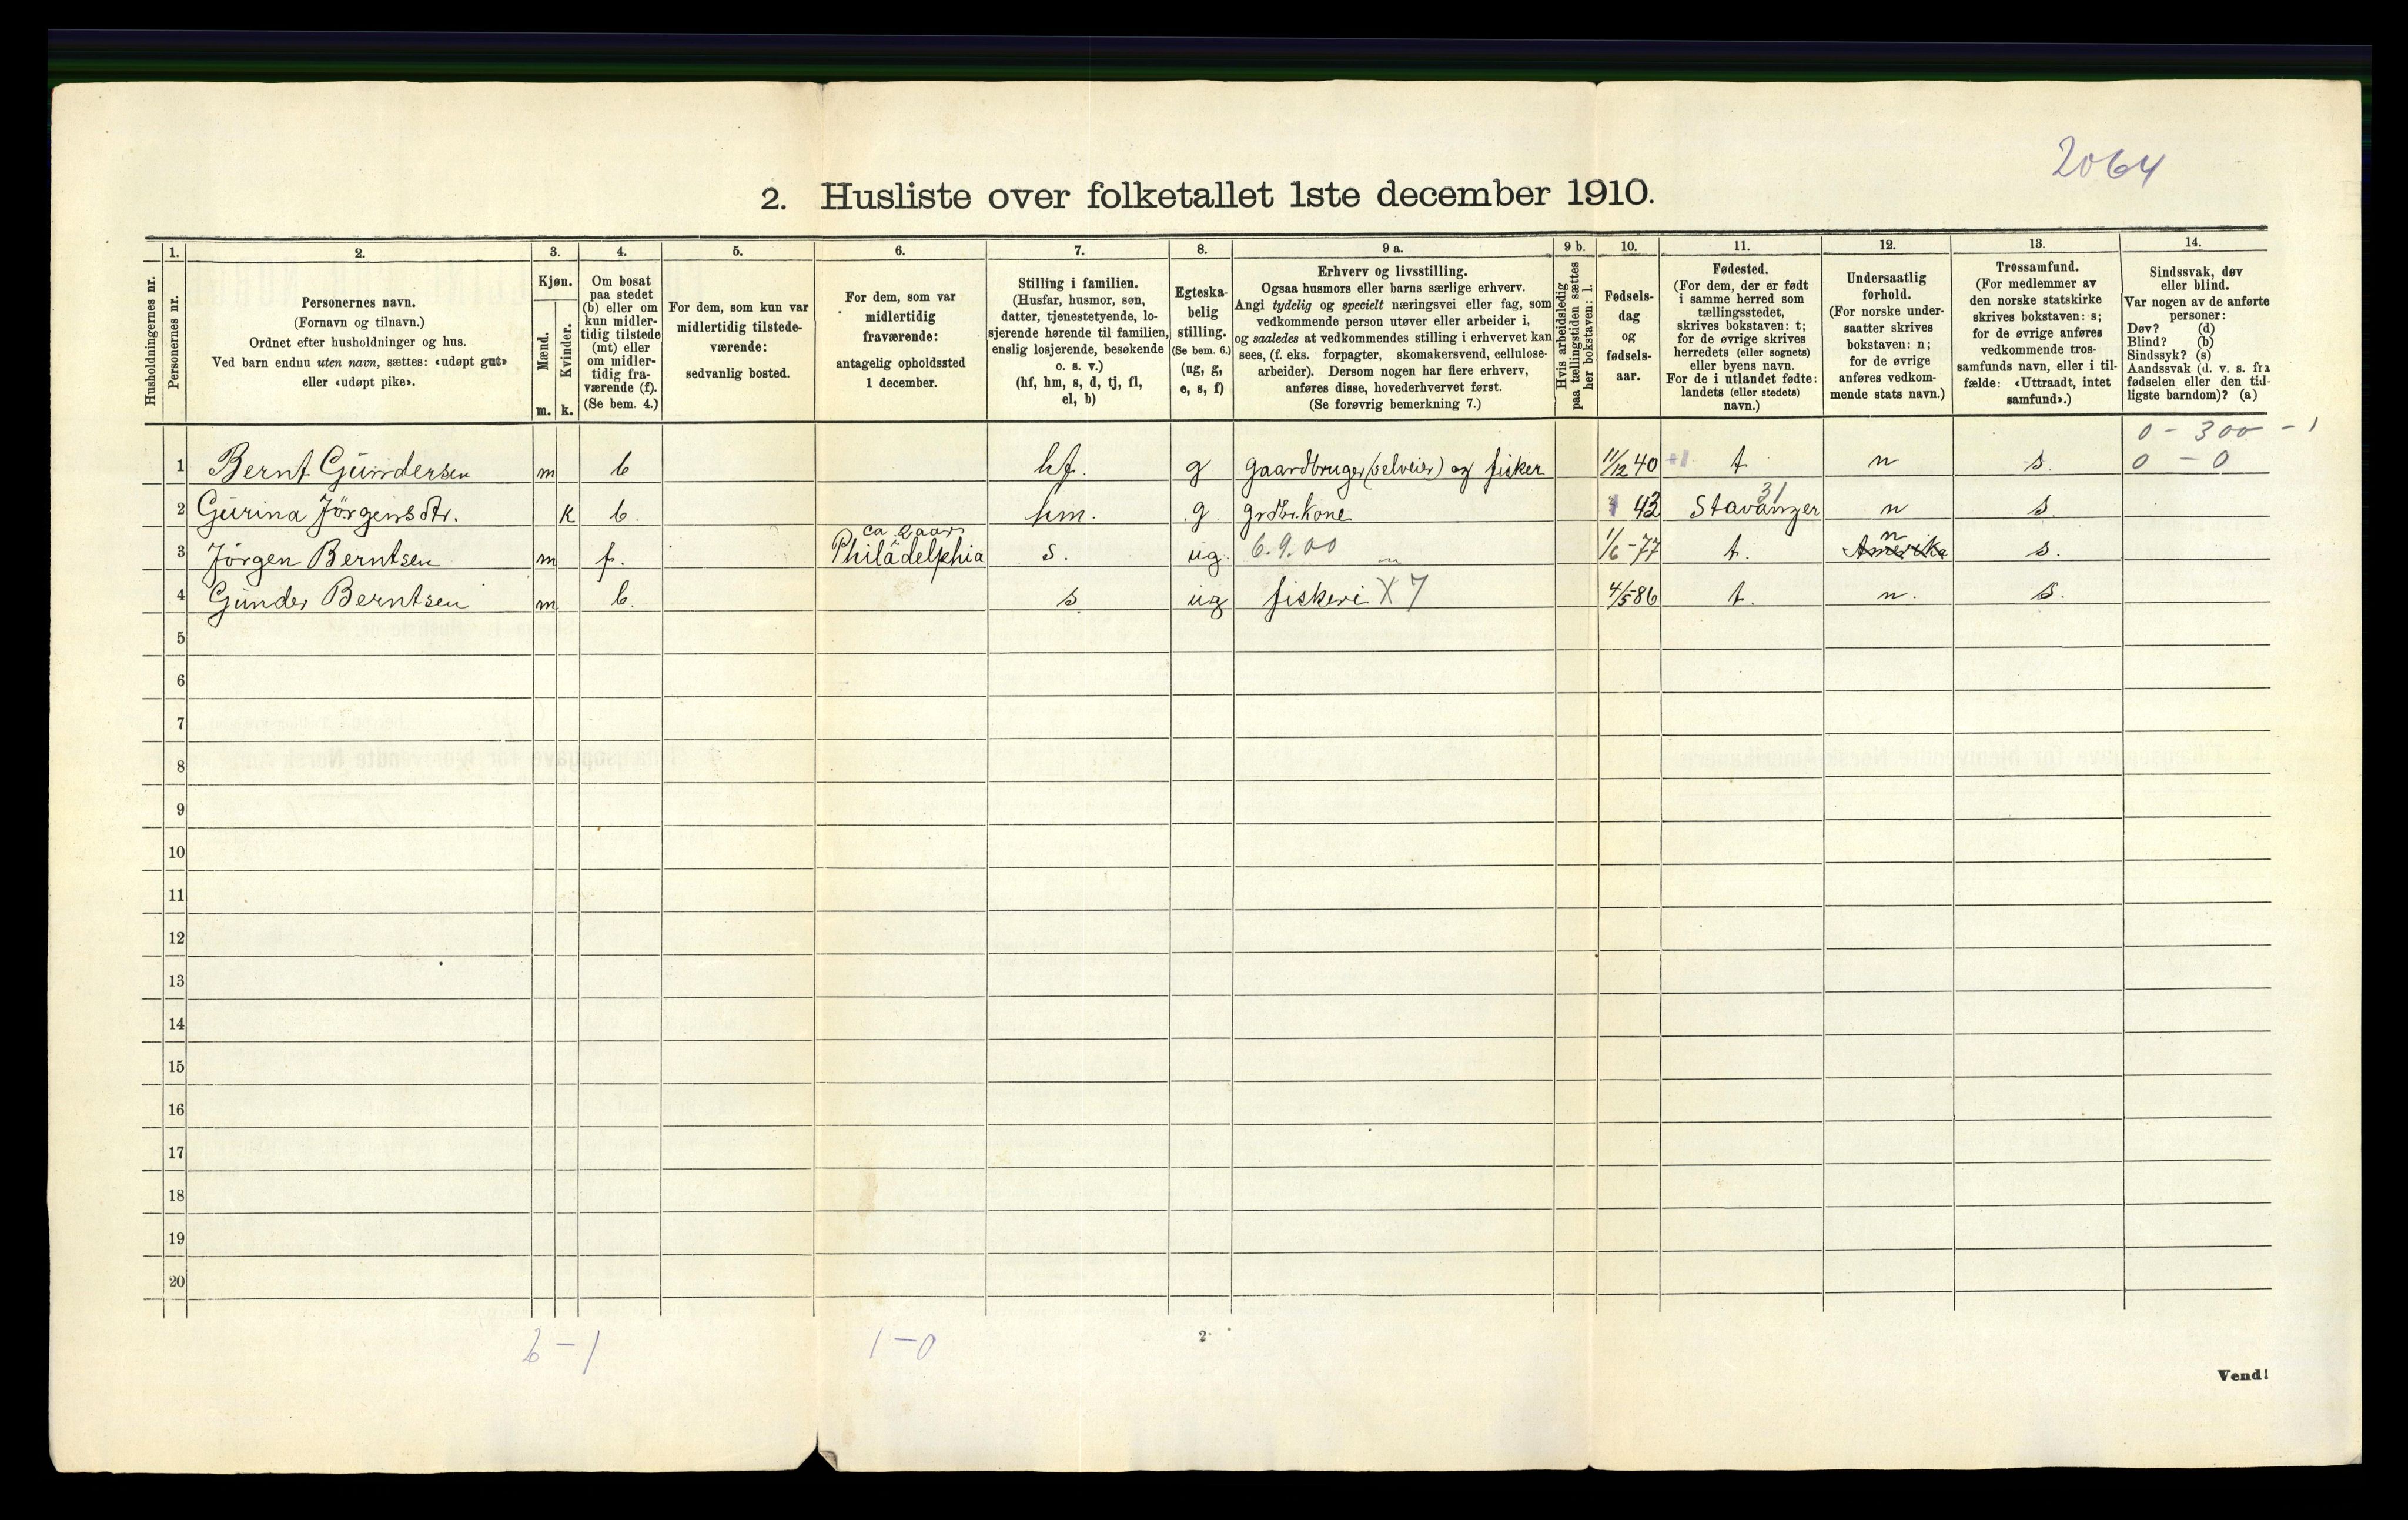 2064
2. Husliste over folketallet 1ste december 1910.
Husholdningernes nr.
1.
Personernes nr.
2.
Personernes navn.
(Fornavn og tilnavn.)
Ordnet efter husholdninger og hus.
Ved barn endnu uten navn, sættes: «udøpt gut»
eller «udøpt pike».
3.
Kjøn.
Mænd.
m.
Kvinder.
k.
4.
Om bosat
paa stedet
(b) eller om
kun midler-
tidig tilstede
(mt) eller
om midler-
tidig fra-
værende (f).
(Se bem. 4.)
5.
For dem, som kun var
midlertidig tilstede-
værende:
sedvanlig bosted.
6.
For dem, som var
midlertidig
fraværende:
antagelig opholdssted
1 december.
7.
Stilling i familien.
(Husfar, husmor, søn,
datter, tjenestetyende, lo-
sjerende hørende til familien,
enslig losjerende, besøkende
o. s. v.)
(hf, hm, s, d, tj, fl,
el, b)
8.
Egteska-
belig
stilling.
(Se bem. 6.)
(ug, g,
e, s, f)
9 a.
Erhverv og livsstilling.
Ogsaa husmors eller barns særlige erhverv.
Angi tydelig og specielt næringsvei eller fag, som
vedkommende person utøver eller arbeider i,
og saaledes at vedkommendes stilling i erhvervet kan
sees, (f. eks. forpagter, skomakersvend, cellulose-
arbeider). Dersom nogen har flere erhverv,
anføres disse, hovederhvervet først.
(Se forøvrig bemerkning 7.)
9 b.
Hvis arbeidsledig
paa tællingstiden sættes
her bokstaven: l.
10.
Fødsels-
dag
og
fødsels-
aar.
11.
Fødested.
(For dem, der er født
i samme herred som
tællingsstedet,
skrives bokstaven: t;
for de øvrige skrives
herredets (eller sognets)
eller byens navn.
For de i utlandet fødte:
landets (eller stedets)
navn.)
12.
Undersaatlig
forhold.
(For norske under-
saatter skrives
bokstaven: n;
for de øvrige
anføres vedkom-
mende stats navn.)
13.
Trossamfund.
(For medlemmer av
den norske statskirke
skrives bokstaven: s;
for de øvrige anføres
vedkommende tros-
samfunds navn, eller i til-
fælde: «Uttraadt, intet
samfund».)
14.
Sindssvak, døv
eller blind.
Var nogen av de anførte
personer:
Døv? (d)
Blind? (b)
Sindssyk? (s)
Aandssvak (d. v. s. fra
fødselen eller den tid-
ligste barndom)? (a)
0 - 300 - 1
1 Bernt Gundersen m b hf. g gaardbruger (selveier) og fisker 11/12 40 t n s. 0 - 0
2 Gurina Jörgensdtr. k b. hm. g. grdbr.kone 42 Stavanger 31 n s.
3 Jörgen Berntsen m f. Philadelphia s. ug. 6.9.00 1/6-77 t. Amerika n s.
4 Gunder Berntsen m b. s ug fiskeri X 7 4/5 86 t. n. s.
5
6
7
8
9
10
11
12
13
14
15
16
17
18
19
20
1-0
2
Vend!